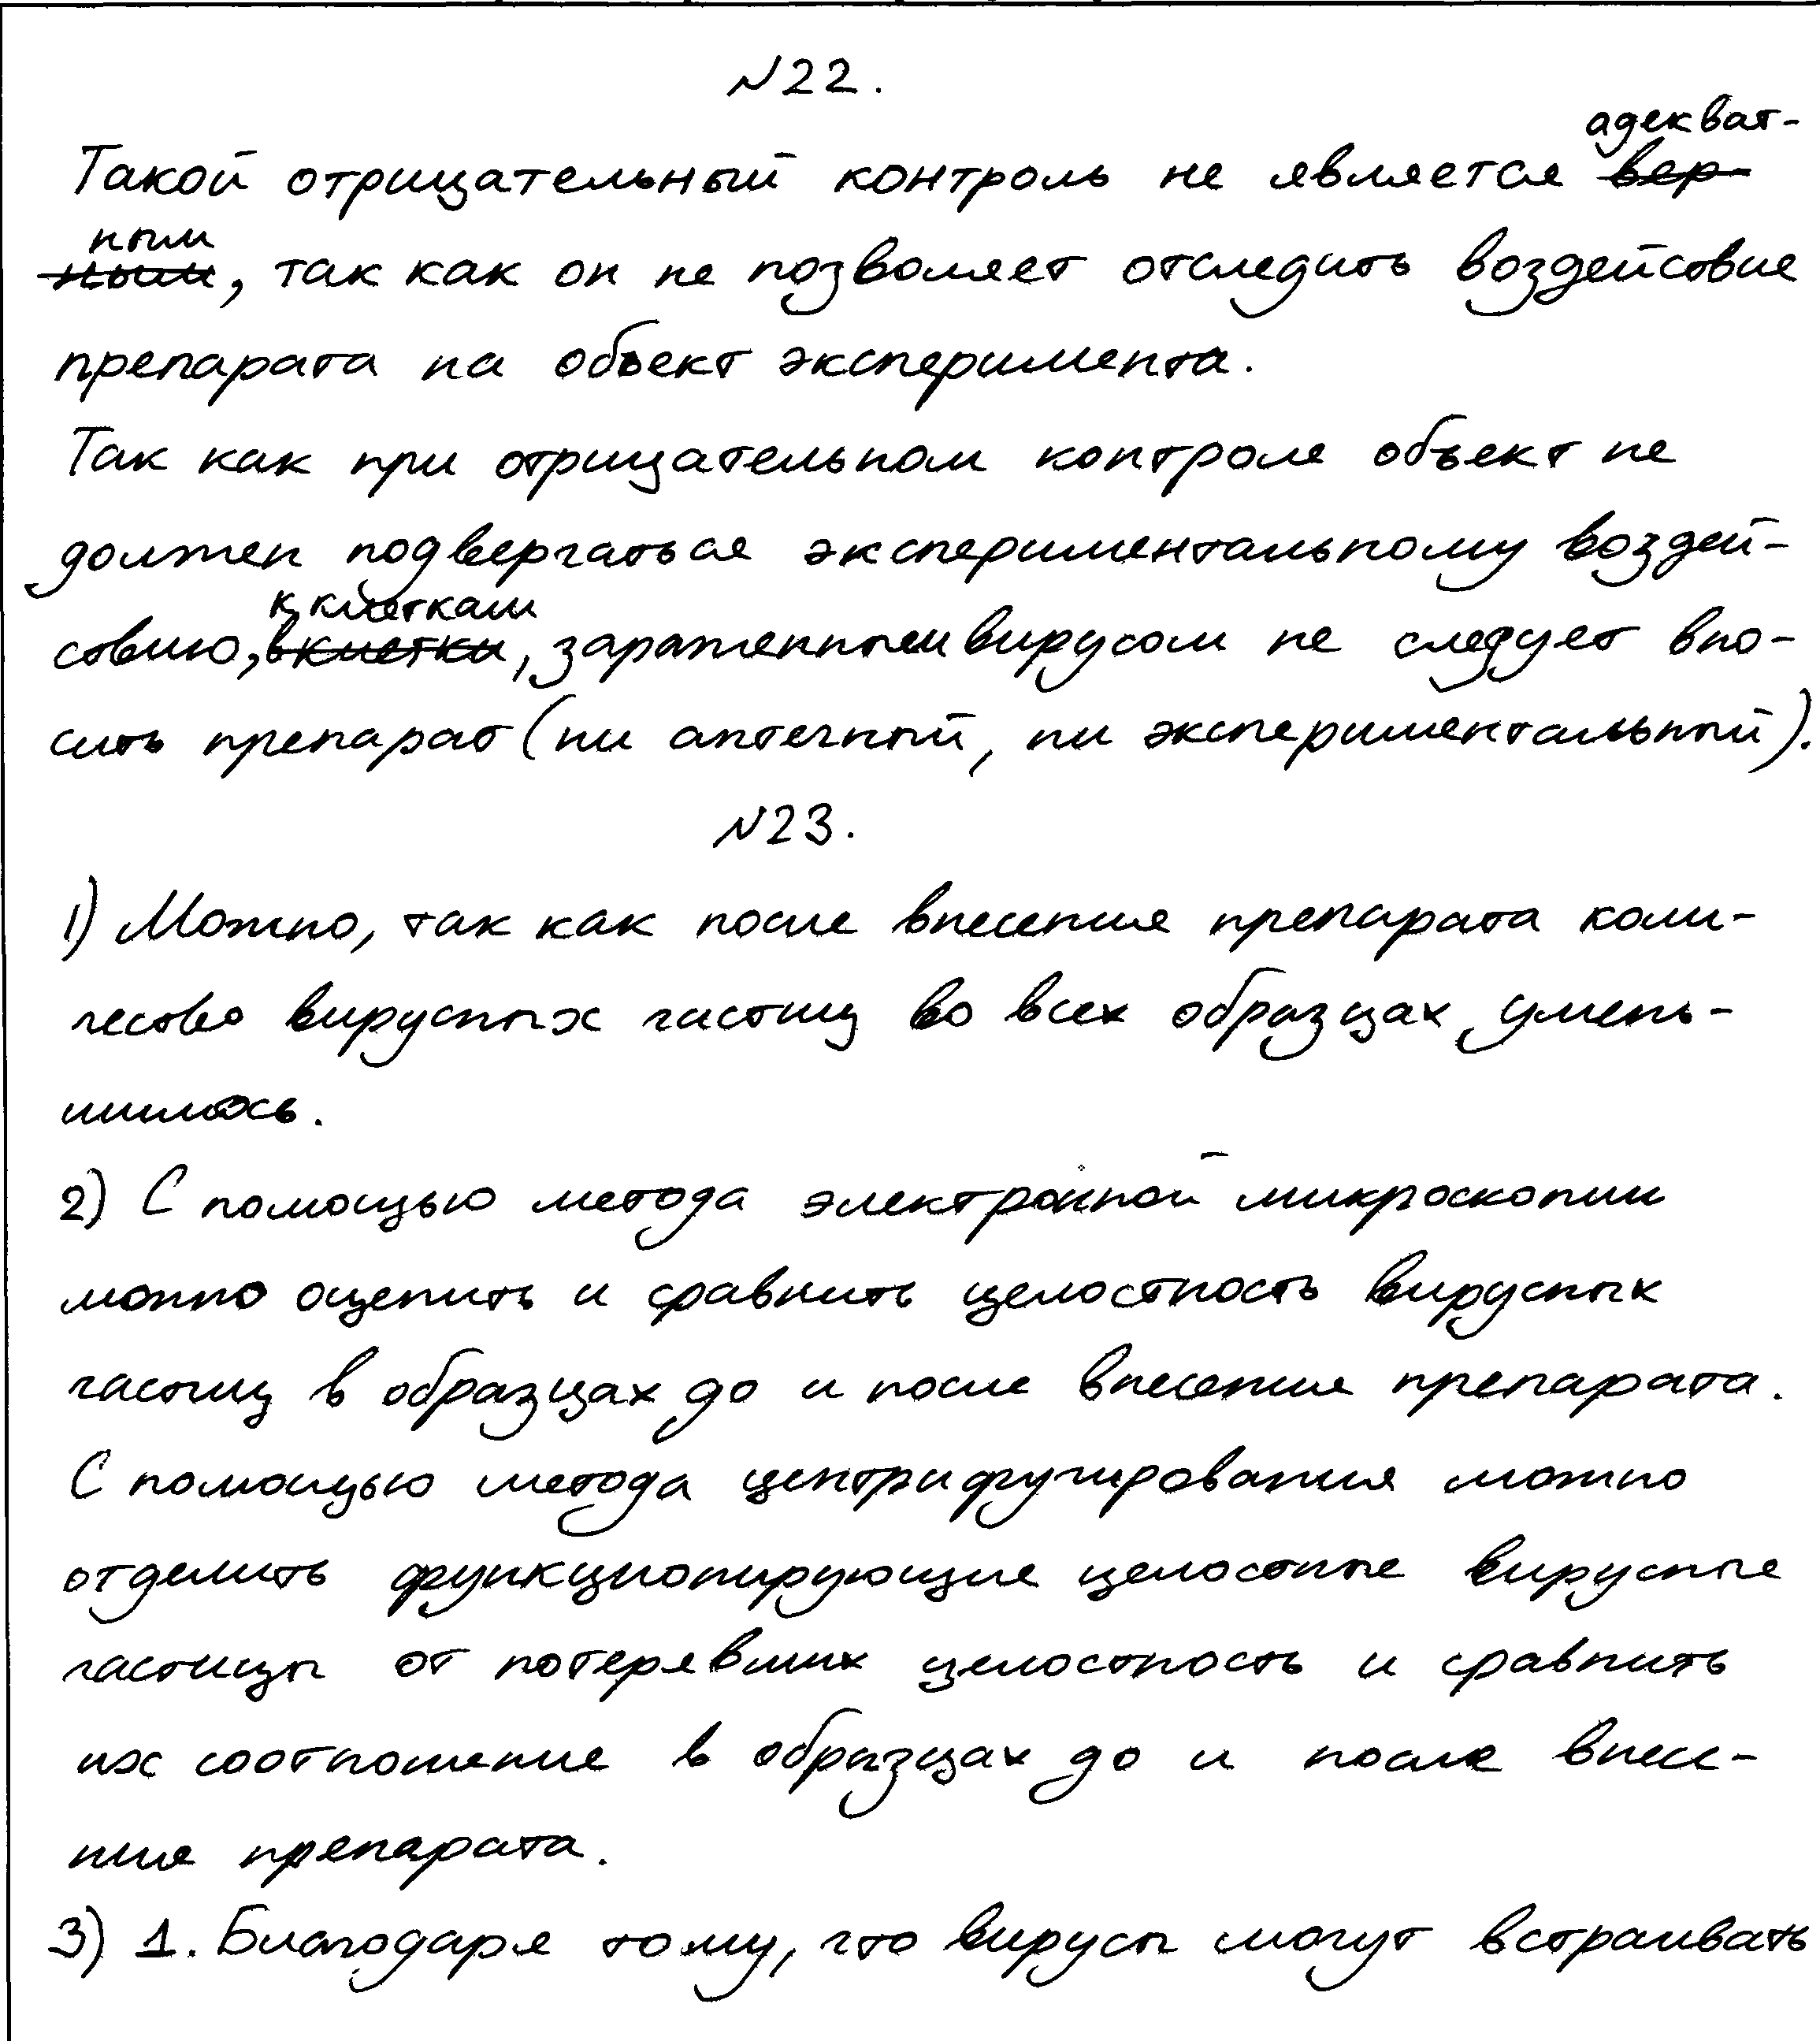 №22.
адекват-
Такой отрицательный контроль не является вер-
ным
ным, так как он не позволяет отследить воздействие
препарата на объект эксперимента.
Так как при отрицательном контроле объект не
должен подвергаться экспериментальному воздей-
к клеткам
ствию, в клетки, зараженным вирусом не следует вно-
сить препарат (ни аптечный, ни экспериментальный).
№23.
1) Можно, так как после внесения препарата коли-
чество вирусных частиц во всех образцах умень-
шилось.
2) С помощью метода электронной микроскопии
можно оценить и сравнить целостность вирусных
частиц в образцах до и после внесения препарата.
С помощью метода центрифугирования можно
отделить функционирующие целостные вирусные
частицы от потерявших целостность и сравнить
их соотношение в образцах до и после внесе-
ния препарата.
3) 1. Благодаря тому, что вирусы могут встраивать